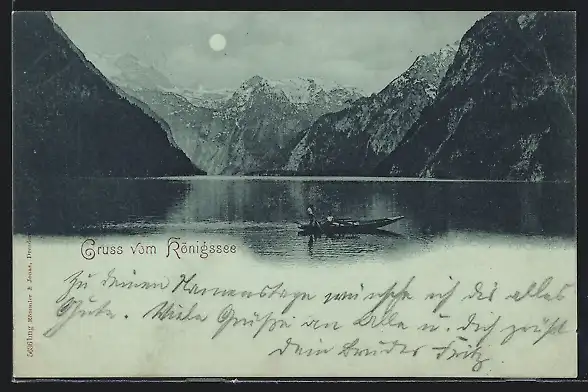 Gruss vom Königssee
Zu deinem Namenstage wünsche ich dir alles
Gute. Viele Grüße an Alle u. dich grüßt
dein Bruder Fritz
Stengel & Jonas, Dresden